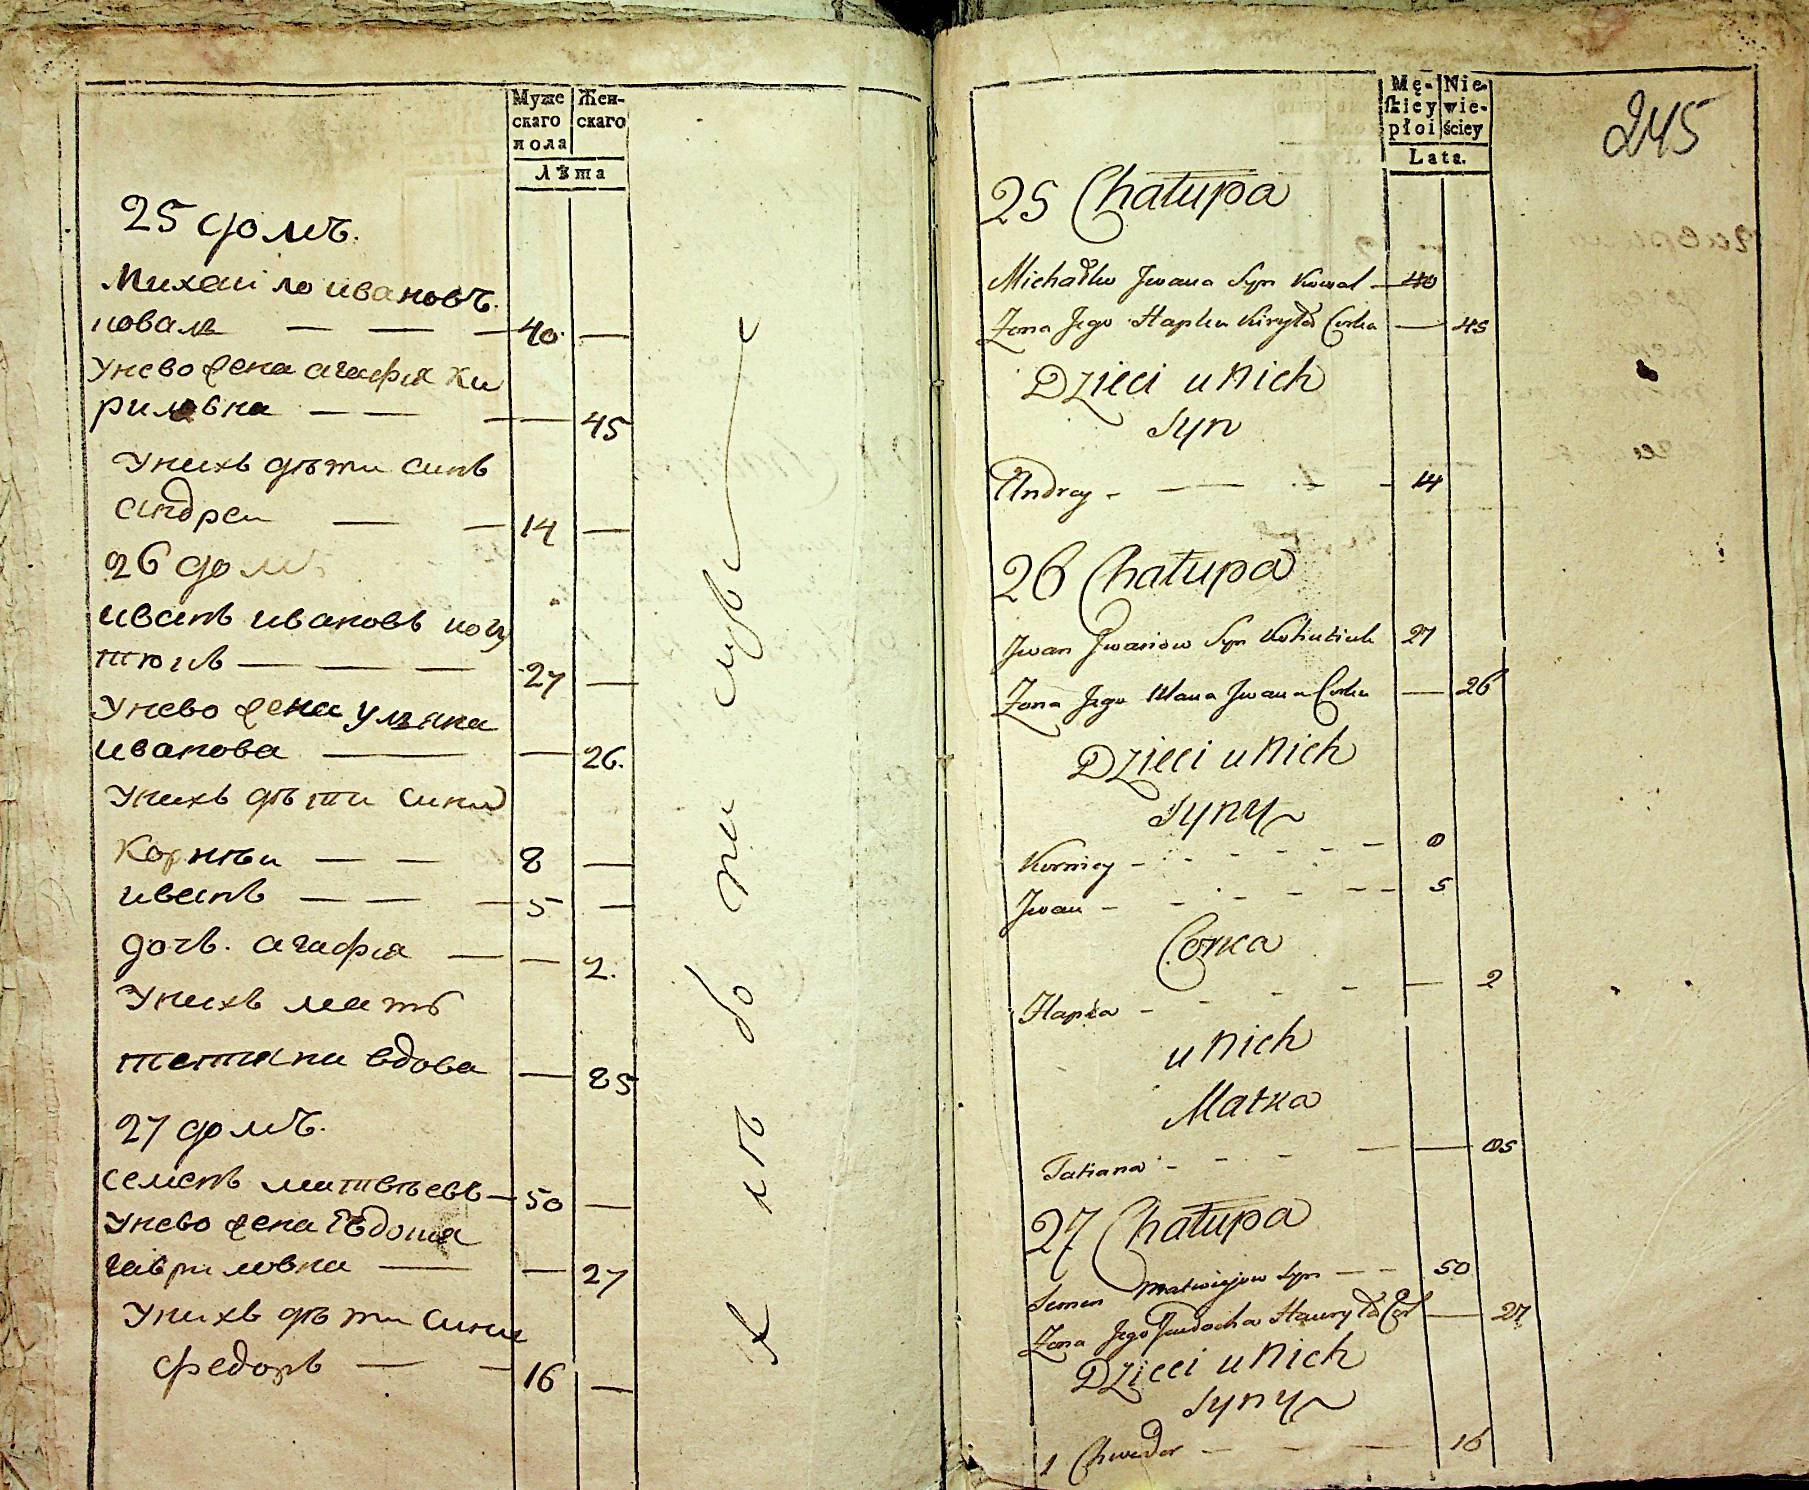 Муже
скаго
пола
Жен-
скаго
Лѣта
25 домъ.
Михаило ивановъ.
коваль — — — 40. —
Унево жена агафия Ки
риловна — — — 45
Унихъ дѣти синъ
андреи — — 14 —
26 домъ
иванъ ивановъ
— — — 27 —
Унево жена уляна
иванова — — 26.
Унихъ дѣти сини
Корнѣи — — 8 —
иванъ — — — 5 —
дочь. агафия — — 2.
Унихъ мать
татияна вдова — 85
27 домъ.
семенъ матвѣевъ — 50 —
Унево жена Евдокия
гавриловна — — 27
Унихъ дѣти сини
федоръ — — 16 —
245
Mę-
skiey
płoi
Nie-
wie-
ściey
Lata.
25 Chałupa
Michałko Jwana Syn Kowal — 40
Zona Jego Hapka Kiryła Corka — 45
Dzieci u Nich
Syn
Andrey - — — - 14
26 Chałupa
Jwan Jwanow Syn 27
Zona Jego Ulana Jwana Corka — 26
Dzieci u Nich
Syny
Korniey - - - - - - 8
Jwan - - - - - - 5
Corka
Hapka - - - - — 2
u Nich
Matka
Tatiana - - - — — 85
27 Chałupa
Semen Matwiejow Syn — - 50
Zona Jego Jewdocha Hawryła Cor — 27
Dzieci u Nich
Syny
1 Chwedor — — — 16